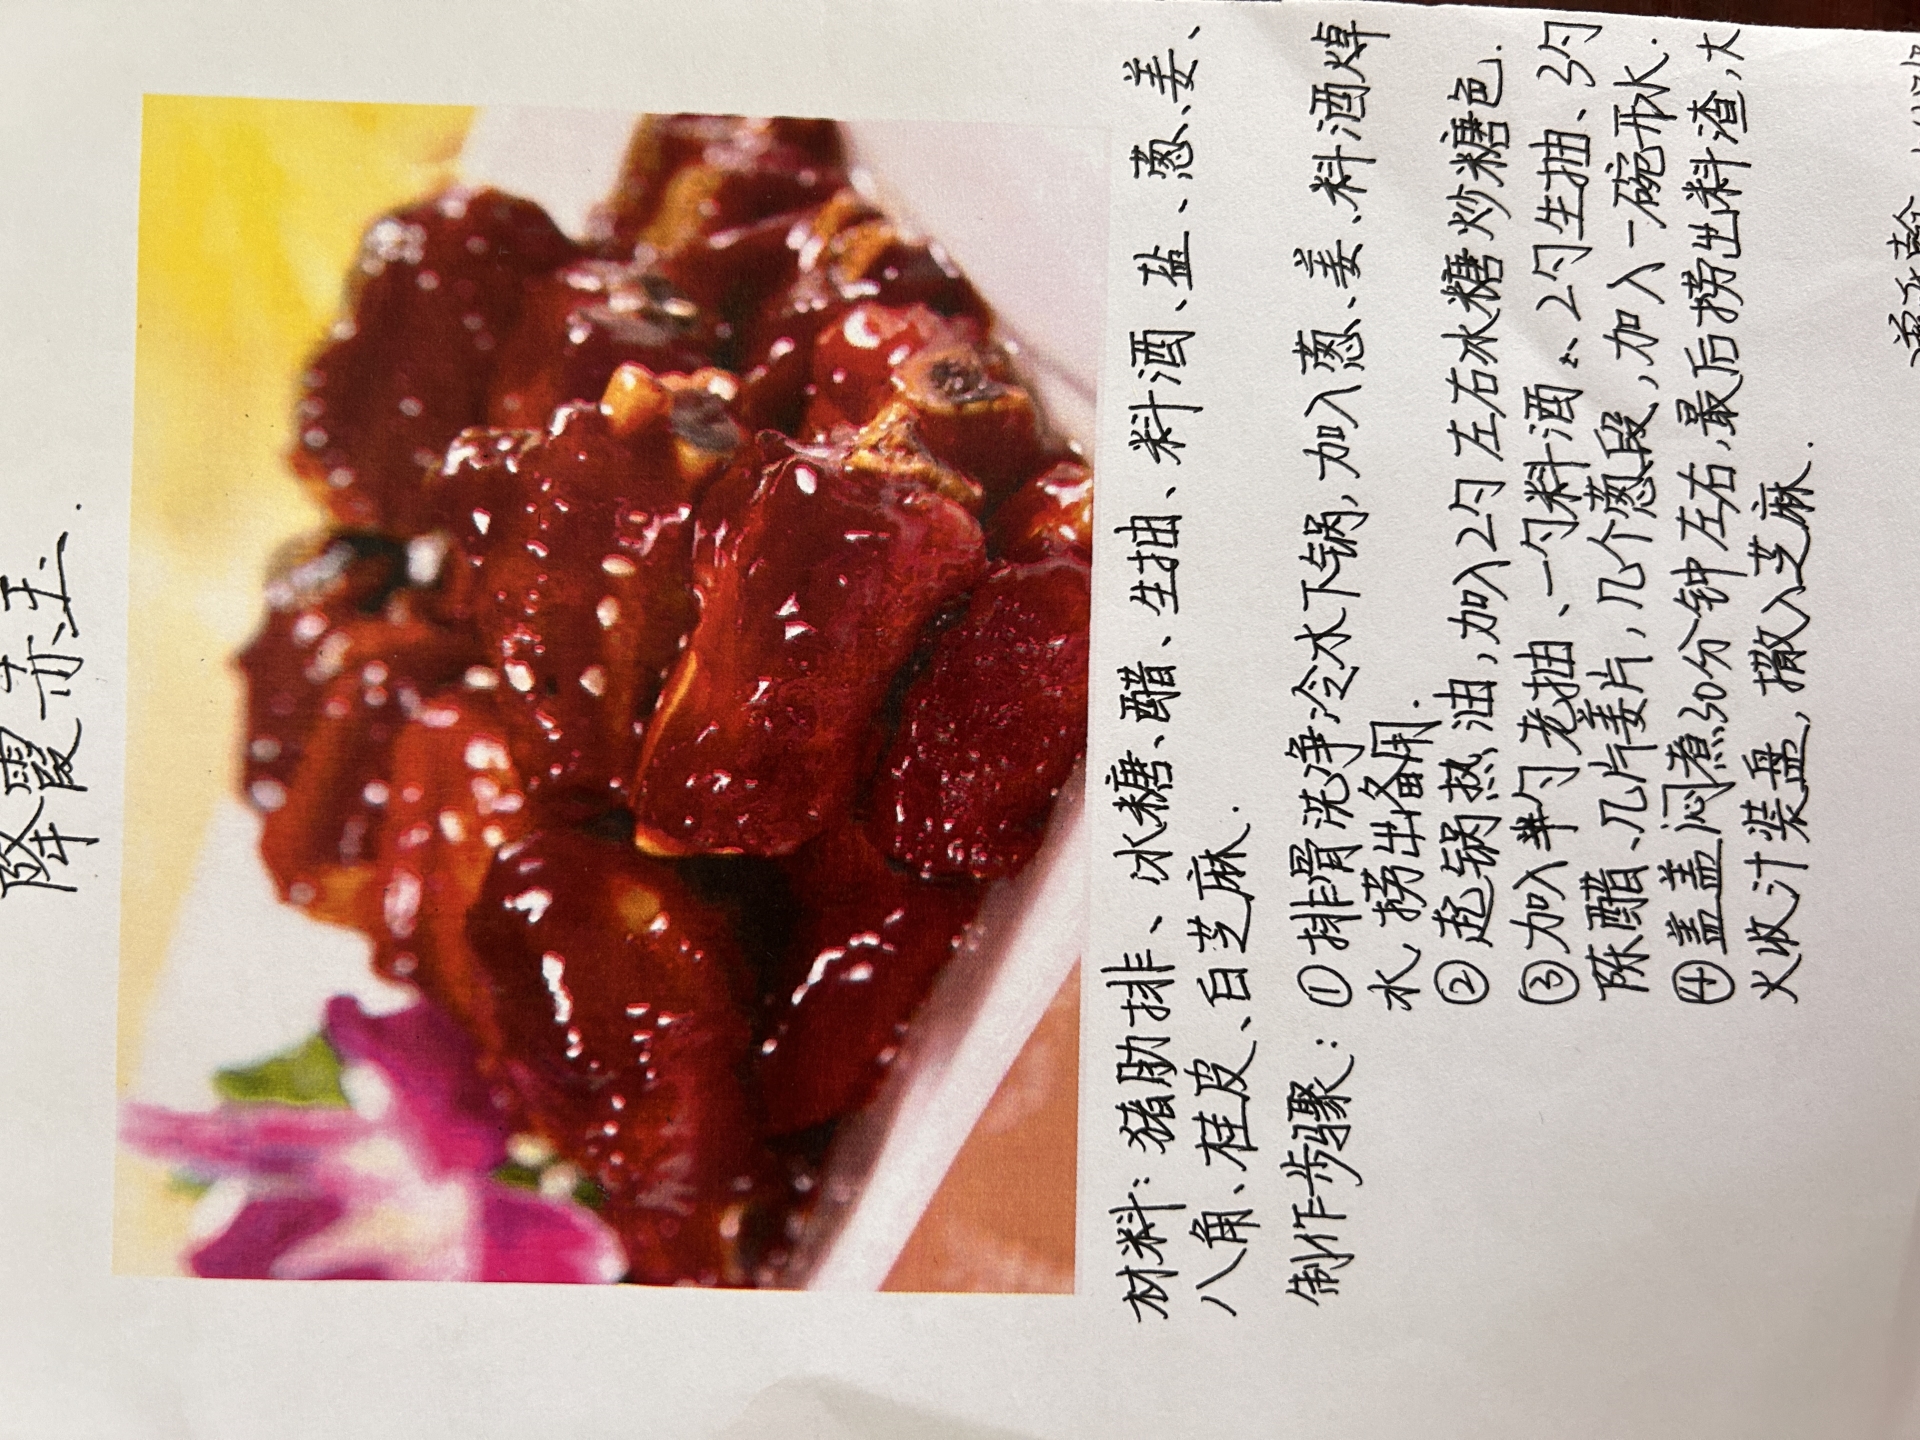 霞赤玉.
材料：猪肋排、冰糖、醋、生抽、料酒、盐、葱、姜、
八角、桂皮、白芝麻.
制作步骤：①排骨洗净冷水下锅,加入葱、姜、料酒焯
水,捞出备用.
②起锅热油,加入2勺左右冰糖炒糖色.
③加入半勺老抽、一勺料酒、2勺生抽、3勺
陈醋、几片姜片,几个葱段,加入一碗开水.
④盖盖闷煮30分钟左右,最后捞出料渣,大
火收汁装盘,撒入芝麻.